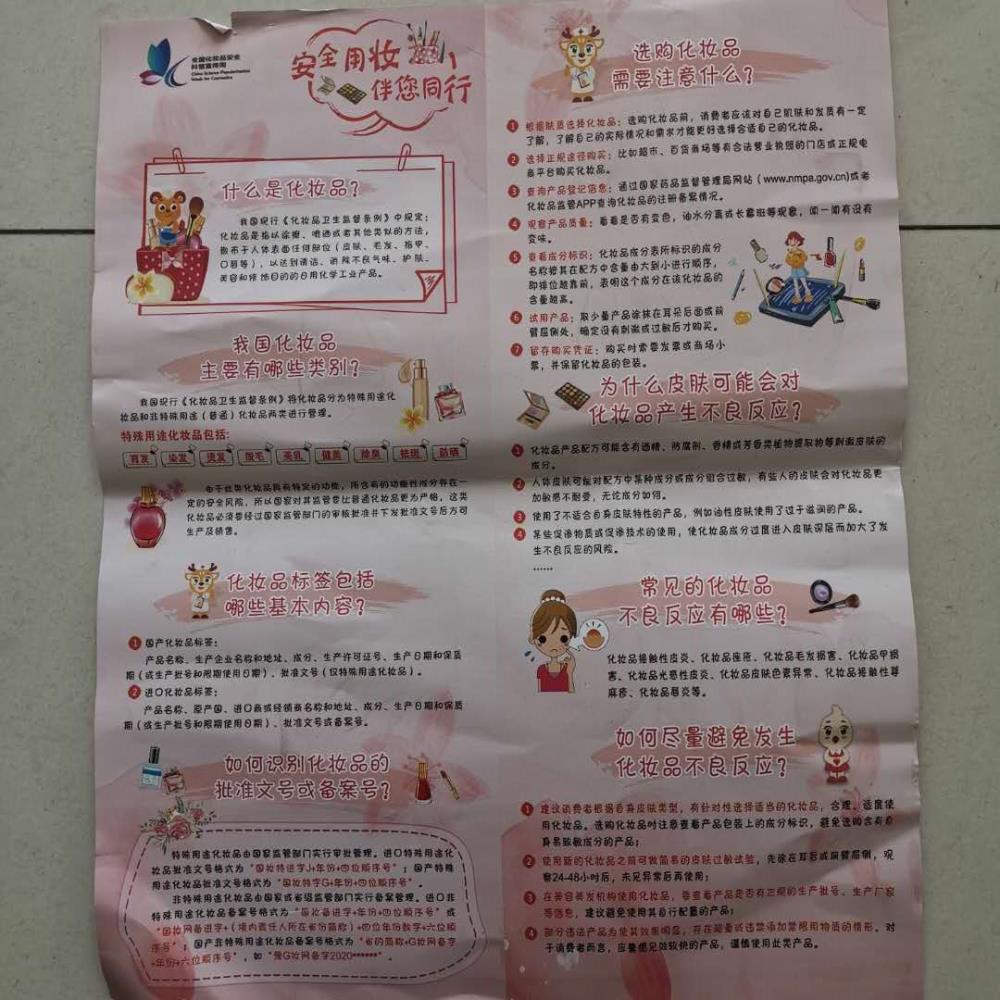 全国化妆品安全
科普宣传周
China Science Popularization
Week for Cosmetics
安全用妆
伴您同行
什么是化妆品？
我国现行《化妆品卫生监督条例》中规定：
化妆品是指以涂擦、喷洒或者其他类似的方法，
散布于人体表面任何部位（皮肤、毛发、指甲、
口唇等），以达到清洁、消除不良气味、护肤、
美容和修饰目的的日用化学工业产品。
我国化妆品
主要有哪些类别？
我国现行《化妆品卫生监督条例》将化妆品分为特殊用途化
妆品和非特殊用途（普通）化妆品两类进行管理。
特殊用途化妆品包括：
育发 染发 烫发 脱毛 美乳 健美 除臭 祛斑 防晒
由于此类化妆品具有特定的功能，所含有的功能性成分存在一
定的安全风险，所以国家对其监管要比普通化妆品更为严格。这类
化妆品必须要经过国家监管部门的审核批准并下发批准文号后方可
生产及销售。
化妆品标签包括
哪些基本内容？
1 国产化妆品标签：
产品名称、生产企业名称和地址、成分、生产许可证号、生产日期和保质
期（或生产批号和限期使用日期）、批准文号（仅特殊用途化妆品）。
2 进口化妆品标签：
产品名称、原产国、进口商或经销商名称和地址、成分、生产日期和保质
期（或生产批号和限期使用日期）、批准文号或备案号。
如何识别化妆品的
批准文号或备案号？
特殊用途化妆品由国家监管部门实行审批管理。进口特殊用途化
妆品批准文号格式为“国妆特进字J+年份+四位顺序号”；国产特殊
用途化妆品批准文号格式为“国妆特字G+年份+四位顺序号”。
非特殊用途化妆品由国家或省级监管部门实行备案管理。进口非
特殊用途化妆品备案号格式为“国妆备进字+年份+四位顺序号”或
“国妆网备进字+（境内责任人所在省份简称）+四位年份数字+六位顺
序号”；国产非特殊用途化妆品备案号格式为“省的简称+G妆网备字
+年份+六位顺序号”，如“豫G妆网备字2020******”。
选购化妆品
需要注意什么？
1 根据肤质选择化妆品：选购化妆品前，消费者应该对自己肌肤和发质有一定
了解，了解自己的实际情况和需求才能更好选择合适自己的化妆品。
2 选择正规途径购买：比如超市、百货商场等有合法营业执照的门店或正规电
商平台购买化妆品。
3 查询产品登记信息：通过国家药品监督管理局网站（www.nmpa.gov.cn)或者
化妆品监管APP查询化妆品的注册备案情况。
4 观察产品质量：看看是否有变色，油水分离或长霉斑等现象，闻一闻有没有
变味。
5 查看成分标识：化妆品成分表所标识的成分
名称按其在配方中含量由大到小进行顺序，
即排位越靠前，表明这个成分在该化妆品的
含量越高。
6 试用产品：取少量产品涂抹在耳朵后面或前
臂屈侧处，确定没有刺激或过敏后才购买。
7 留存购买凭证：购买时需要发票或商场小
票，并保留化妆品的包装。
为什么皮肤可能会对
化妆品产生不良反应？
1 化妆品产品配方可能含有酒精、防腐剂、香精或芳香类植物提取物等刺激皮肤的
成分。
2 人体皮肤可能对配方中某种成分或成分组合过敏，有些人的皮肤会对化妆品更
加敏感不耐受，无论成分如何。
3 使用了不适合自身皮肤特性的产品，例如油性皮肤使用了过于滋润的产品。
4 某些促渗物质或促渗技术的使用，使化妆品成分过度进入皮肤深层而加大了发
生不良反应的风险。
……
常见的化妆品
不良反应有哪些？
化妆品接触性皮炎、化妆品痤疮、化妆品毛发损害、化妆品甲损
害、化妆品光感性皮炎、化妆品皮肤色素异常、化妆品接触性荨
麻疹、化妆品唇炎等。
如何尽量避免发生
化妆品不良反应？
1 建议消费者根据自身皮肤类型，有针对性选择适当的化妆品，合理、适度使
用化妆品。选购化妆品时注意查看产品包装上的成分标识，避免选购含有自
身易致敏成分的产品；
2 使用新的化妆品之前可做简易的皮肤过敏试验，先涂在耳后或前臂屈侧，观
察24-48小时后，未见异常后再使用；
3 在美容美发机构使用化妆品，要查看产品是否有正规的生产批号、生产厂家
等信息，建议避免使用其自行配置的产品；
4 部分违法产品为使其效果明显，存在超量或违禁添加禁限用物质的情形。对
于消费者而言，应警惕见效较快的产品，谨慎使用此类产品。